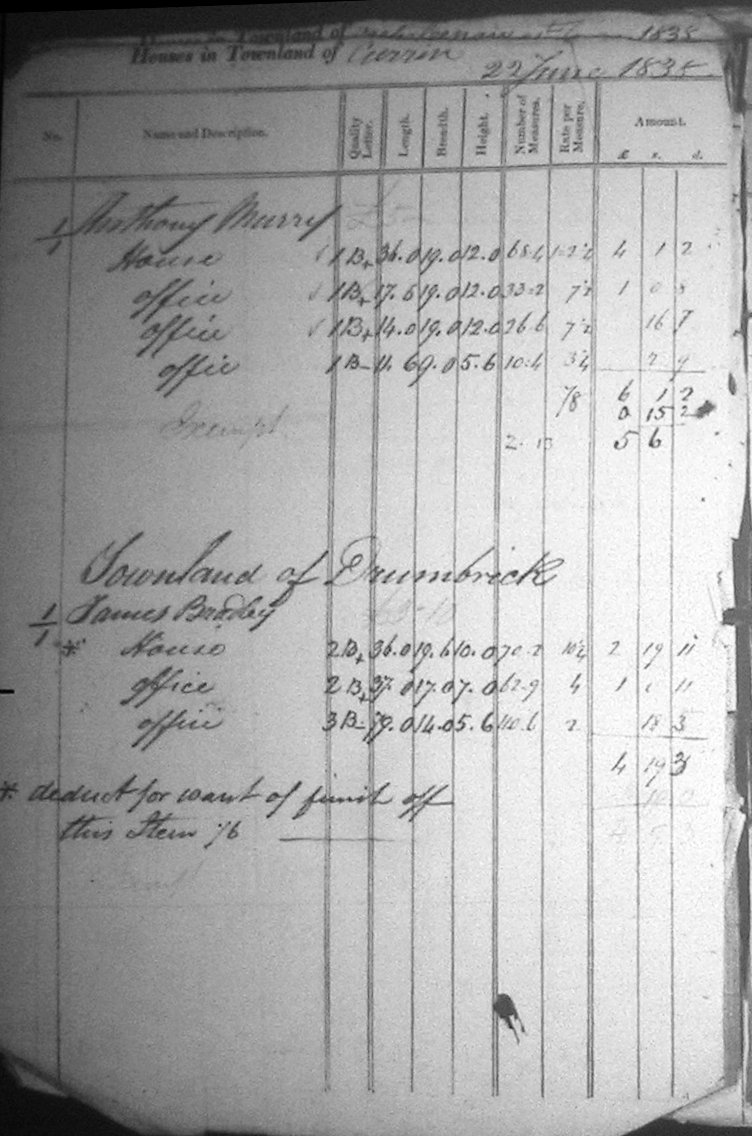 Houses in Townland of 1835
Houses in Townland of Currin
22 June 1835
No. Name and Description. Quality Letter. Length. Breadth. Height. Number of Measures. Rate per Measure. Amount.
£. s. d.
1/1 Anthony Murry £5
House 1B+ 36.0 19.0 12.0 68.4 1-2¼ 4 1 2
office 1B+ 17.6 19.0 12.0 33.2 7½ 1 0 8
office 1B+ 14.0 19.0 12.0 26.6 7½ 16 7
offic 1B- 11.6 9.0 5.6 10.4 3¼ 2 9
6 1 2
/8 0 15 2
Exempt 2. 13 5 6
Townland of Drumbrick
1/1 James Bradey £3-10
* House 2B+ 36.0 19.6 10.0 70.2 10¼ 2 19 11
office 2B+ 37.0 17.0 7.0 62.9 4 1 0 11
office 3B- 79.0 14.0 5.6 110.6 2 18 5
4 19 3
* deduct for want of finish off 10 0
this Item /6 4 3